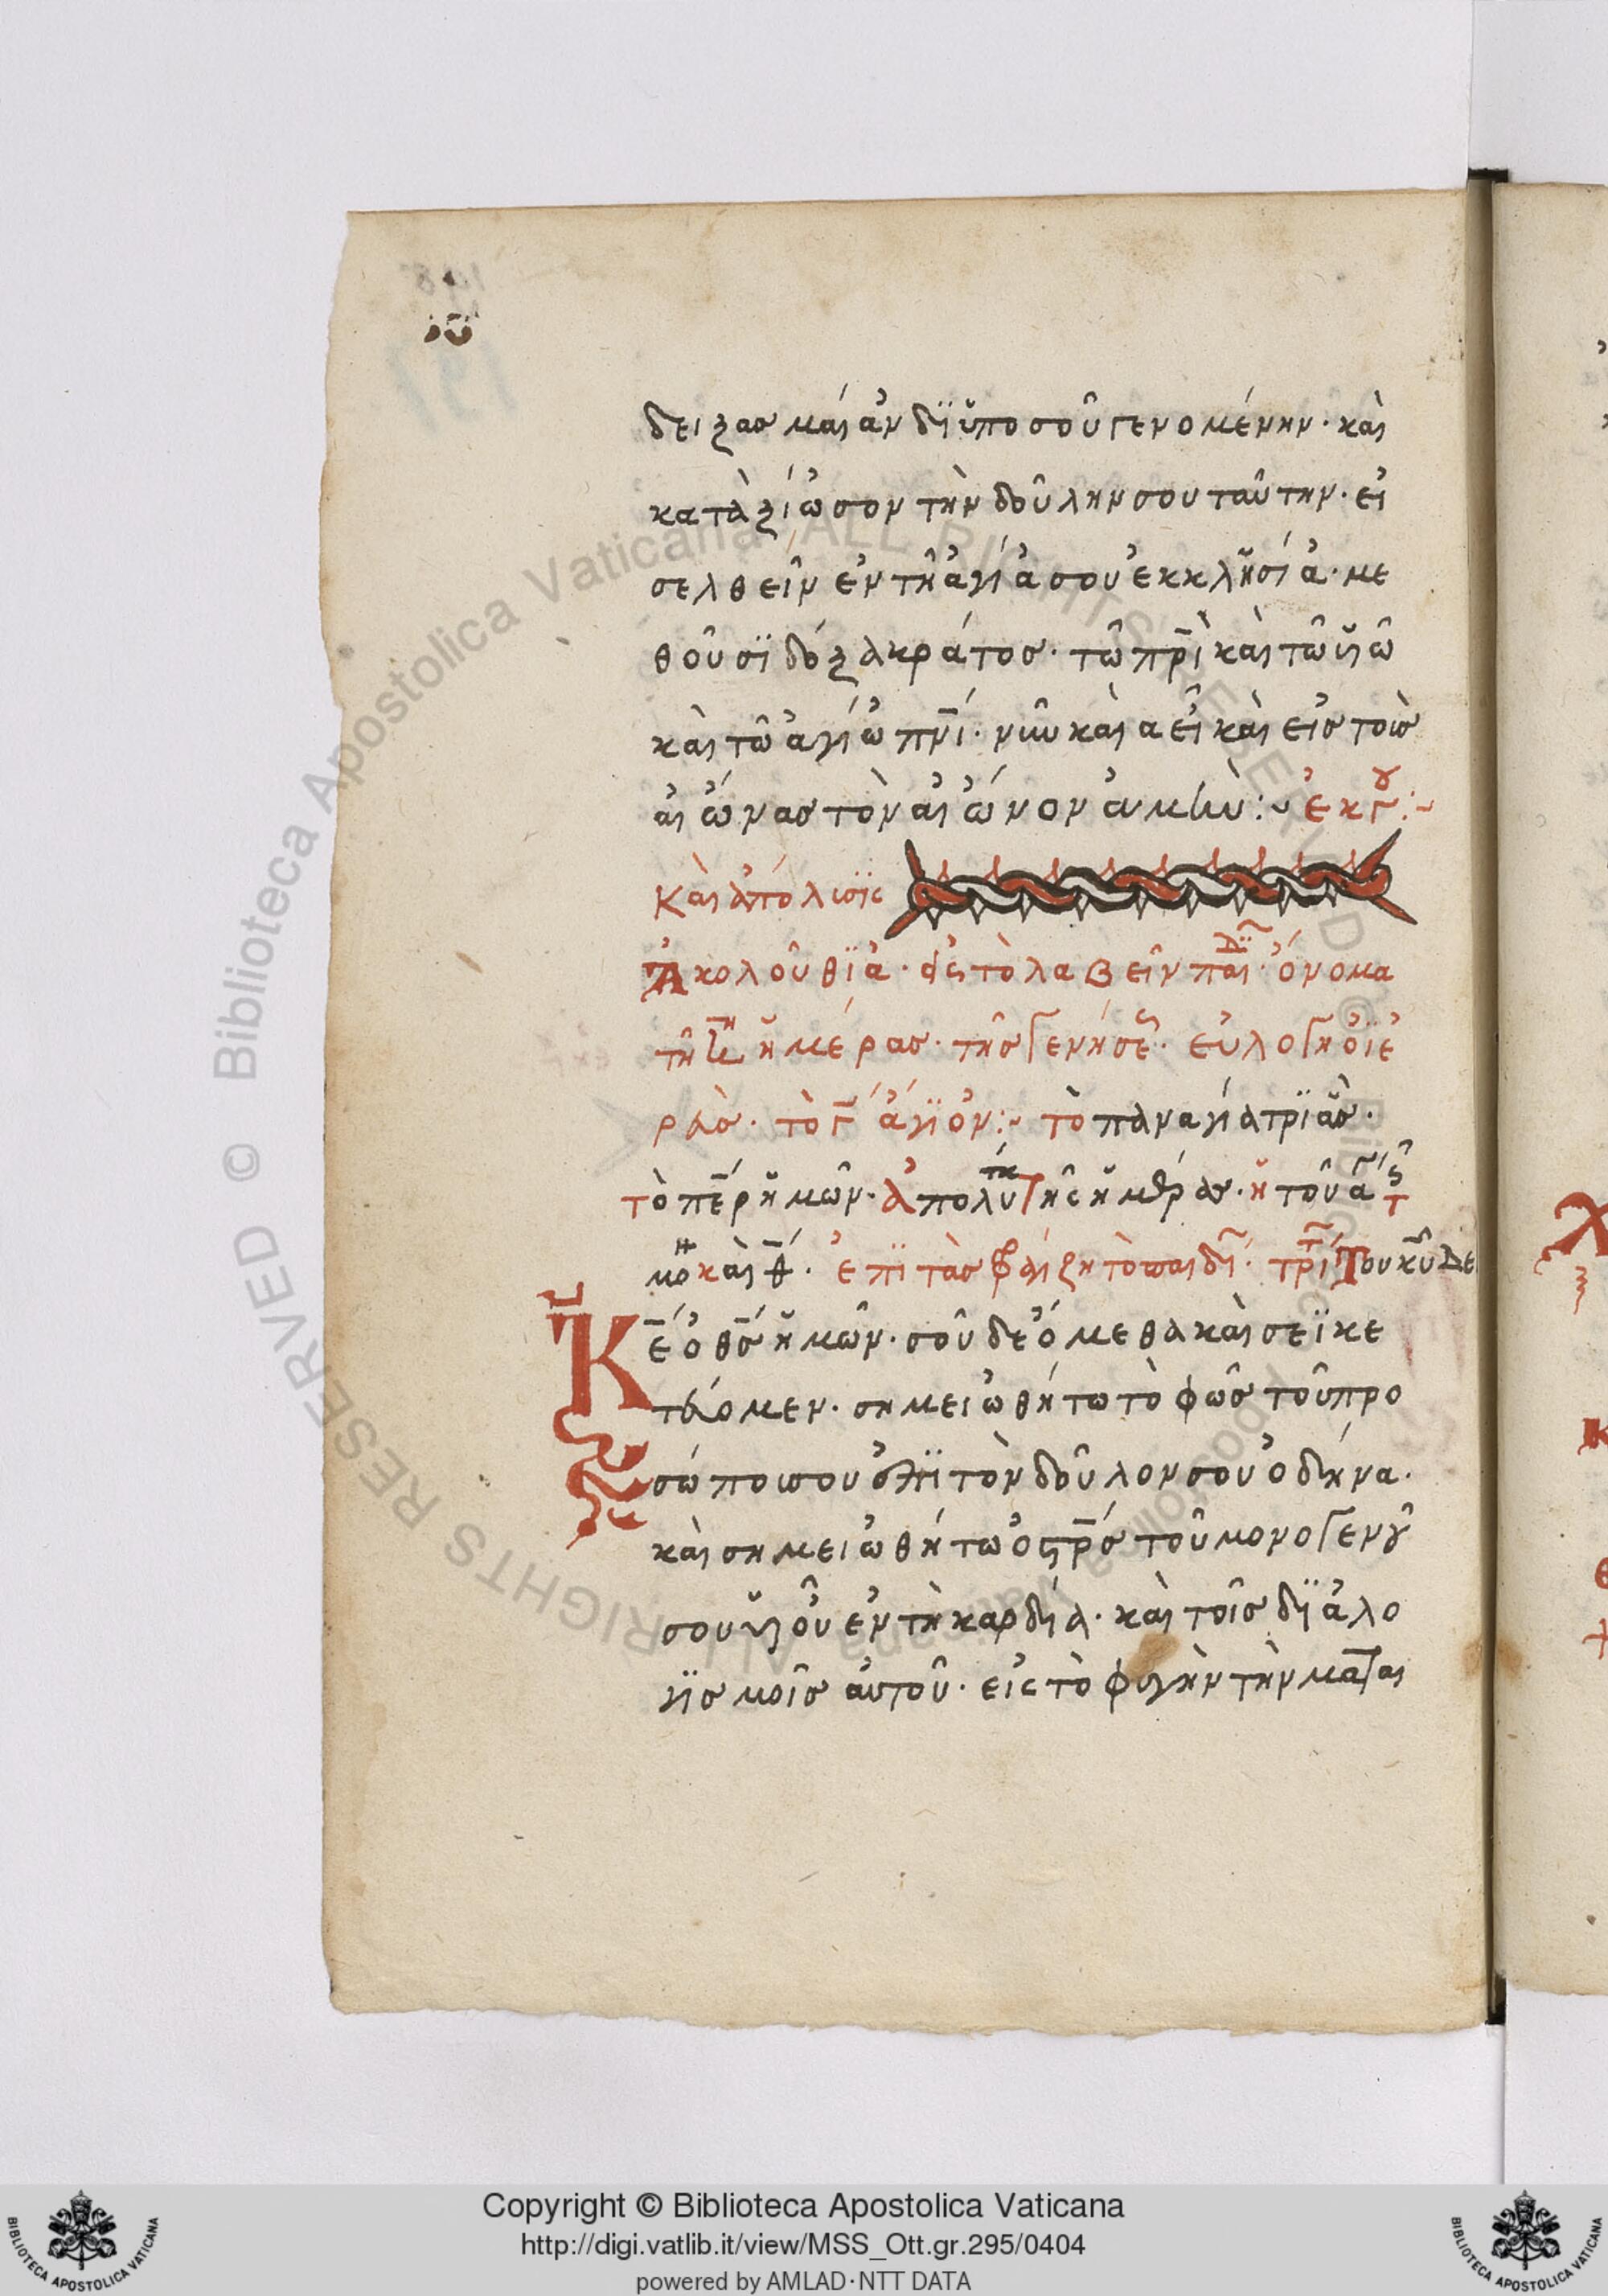 δειξασ μαίαν δϊ ὑπο σοῦ γενομένην· καὶ
κατὰξίώσον τὴν δοῦλην σου ταῦτην· εἰ
σελθεῖν ἐν τῆ ἁγίά σου ἐκκλησίά· με
θοῦ σϊ δόξα κράτοσ· τῶ πρὶ καὶ τῶ υἱῶ
καὶ τῶ ἁγίώ πνὶ· νῦν καὶ αεῖ καὶ εἰσ τοὺσ
αἰώνασ τὸν αἰώνον ἀμὴν:~ ἐκ γ:~
Καὶ ἀπόλυσϊς
Ἀκολοῦθϊα· εἰς τὸ λαβεῖν παιδϊ· ὄνομα
τῆ η ἡμέρασ· τῆσ γενήσε· εὐλογη ὁ ϊε
ρὰσ· τὸ γ ἅγϊον:~ τὸ παναγία τρϊὰσ·
τὸ περ ἡμῶν· ἀπολυτικ τῆς ἡμέρασ· ἢ τοῦ ἁγ
Κε ὁ θσ ἡμῶν· σοῦ δεόμεθα καὶ σε ϊκε
τεύομεν· σημειώθήτω τὸ φῶσ τοῦ προ
σώπου σου ἐπϊ τὸν δοῦλον σου ὁ δήνα·
καὶ σημειώθήτω ὁ στρσ τοῦ μονογενοῦ
σου υἱοῦ ἐν τὴ καρδία· καὶ τοῖσ δϊάλο
γϊσμοῖσ αὐτοῦ· εἰς τὸ φυγὴν τὴν μαται
Copyright © Biblioteca Apostolica Vaticana
http://digi.vatlib.it/view/MSS_Ott.gr.295/0404
powered by AMLAD·NTT DATA